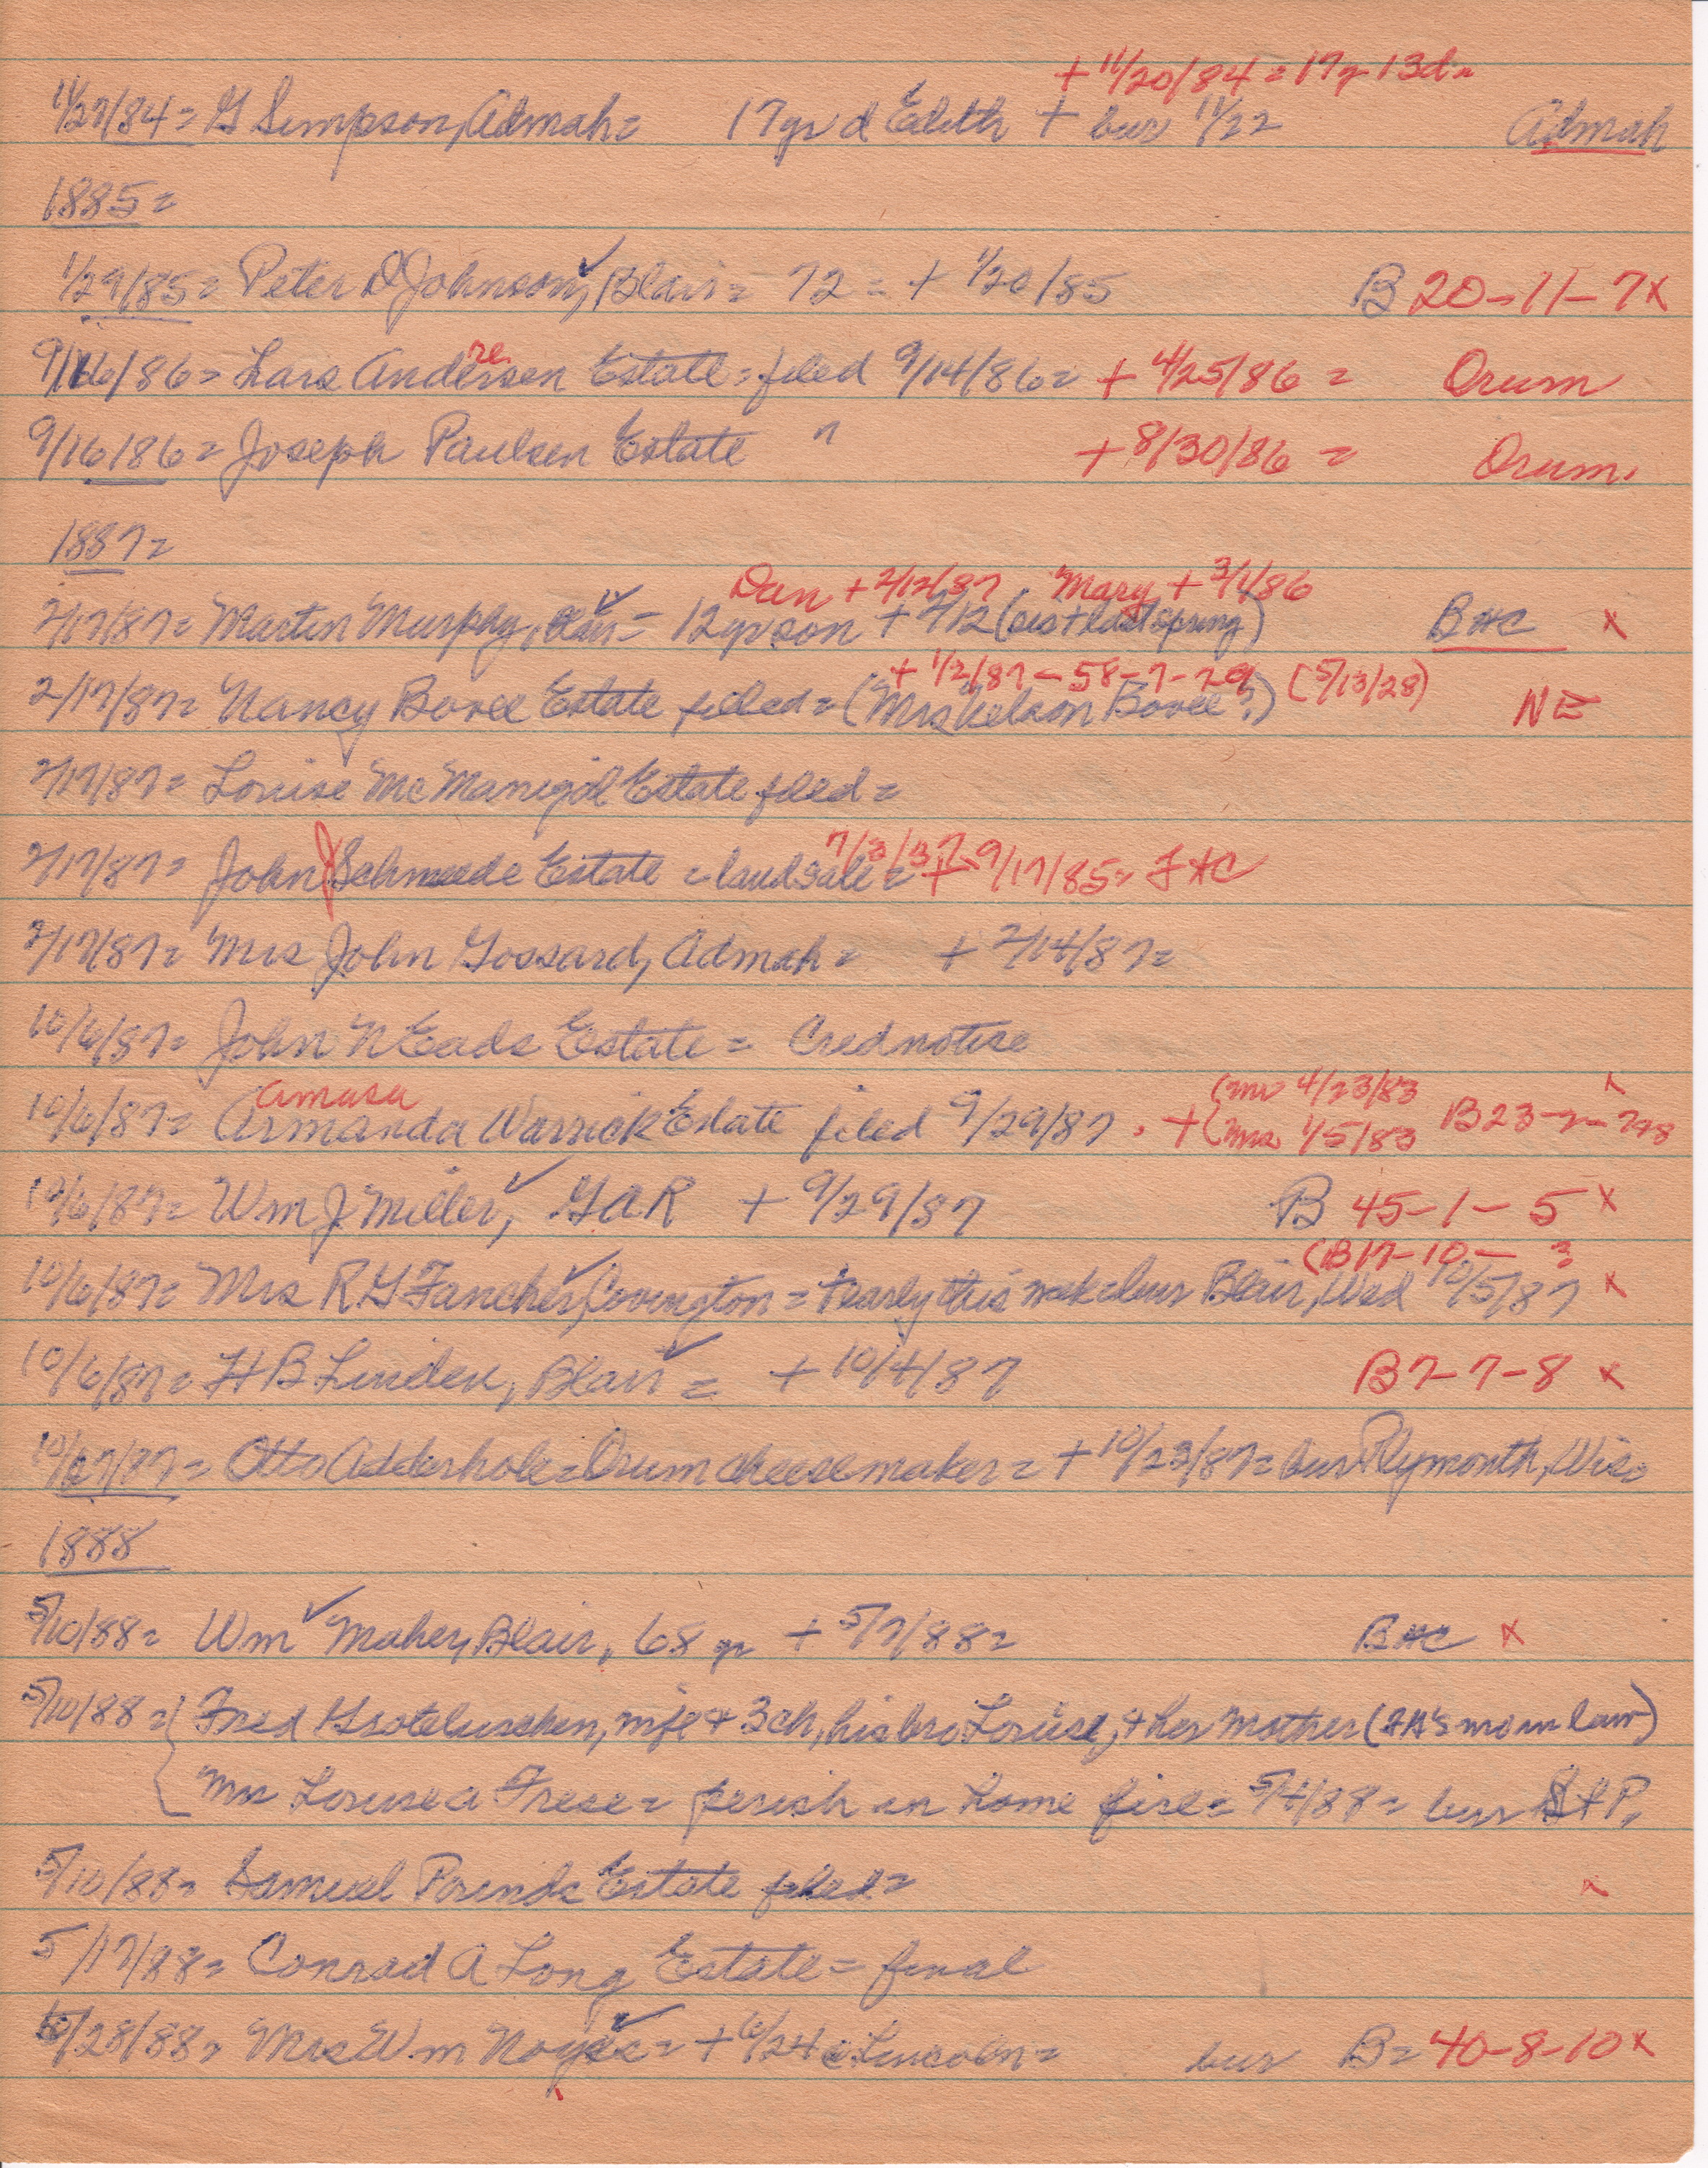 + 11/20/84 = 17y 13da
11/27/84 = G Simpson, Admah = 17yr d Edith + bur 11/22 Admah
1885 =
1/29/85 = Peter D Johnson, Blair = 72 = + 1/20/85 B 20-11-7 x
re
9/16/86 = Lars Andersen Estate = filed 9/14/86 = + 4/25/86 = Orum
9/16/86 = Joseph Paulsen Estate " + 8/30/86 = Orum.
1887 =
Dan + 2/12/87 Mary + 3/1/86
2/17/87 = Martin Murphy, Blair = 12yr son + 2/12 (sis + last spring) BHC x
+ 1/2/87 - 58-7-29 (5/13/28)
2/17/87 = Nancy Bovee Estate filed = (Mrs Nelson Bovee?) NE
2/17/87 = Louise McManigol Estate filed =
7/3/37
2/17/87 = John J Schmeede Estate = landsale = + 9/17/85 = FHC
2/17/87 = Mrs John Gossard, Admah = + 2/14/87 =
10/6/87 = John N Eads Estate = Crednotice
Amasa (Mr 4/23/83 x
10/6/87 = Armanda Warrick Estate filed 9/29/87. + (Mrs 1/5/83 B23-7-7+8
10/6/87 = Wm J Miller, GAR + 9/29/87 B 45-1-5 x
(B17-10- 3
10/6/87 = Mrs R G Fancher, Covington = + early this week = bur Blair, Wed 10/5/87 x
10/6/87 = H B Linden, Blair = + 10/4/87 B7-7-8 x
10/27/87 = Otto Adderhole = Orum cheesemaker = + 10/23/87 = bur Plymouth, Wisc
1888
5/10/88 = Wm Maher, Blair, 68 yr + 5/7/88 = BHC x
5/10/88 = { Fred Groteluschen, wife + 3 ch, his bro Louise, + her mother (FH's mom law)
Mrs Louise a Frese = perish in home fire = 5/4/88 = bur St P.
5/10/88 = Samuel Pounds Estate filed = x
5/17/88 = Conrad A Long Estate = final
6/28/88 = Mrs Wm Noyes = + 6/24 @ Lincoln = bur B = 40-8-10 x